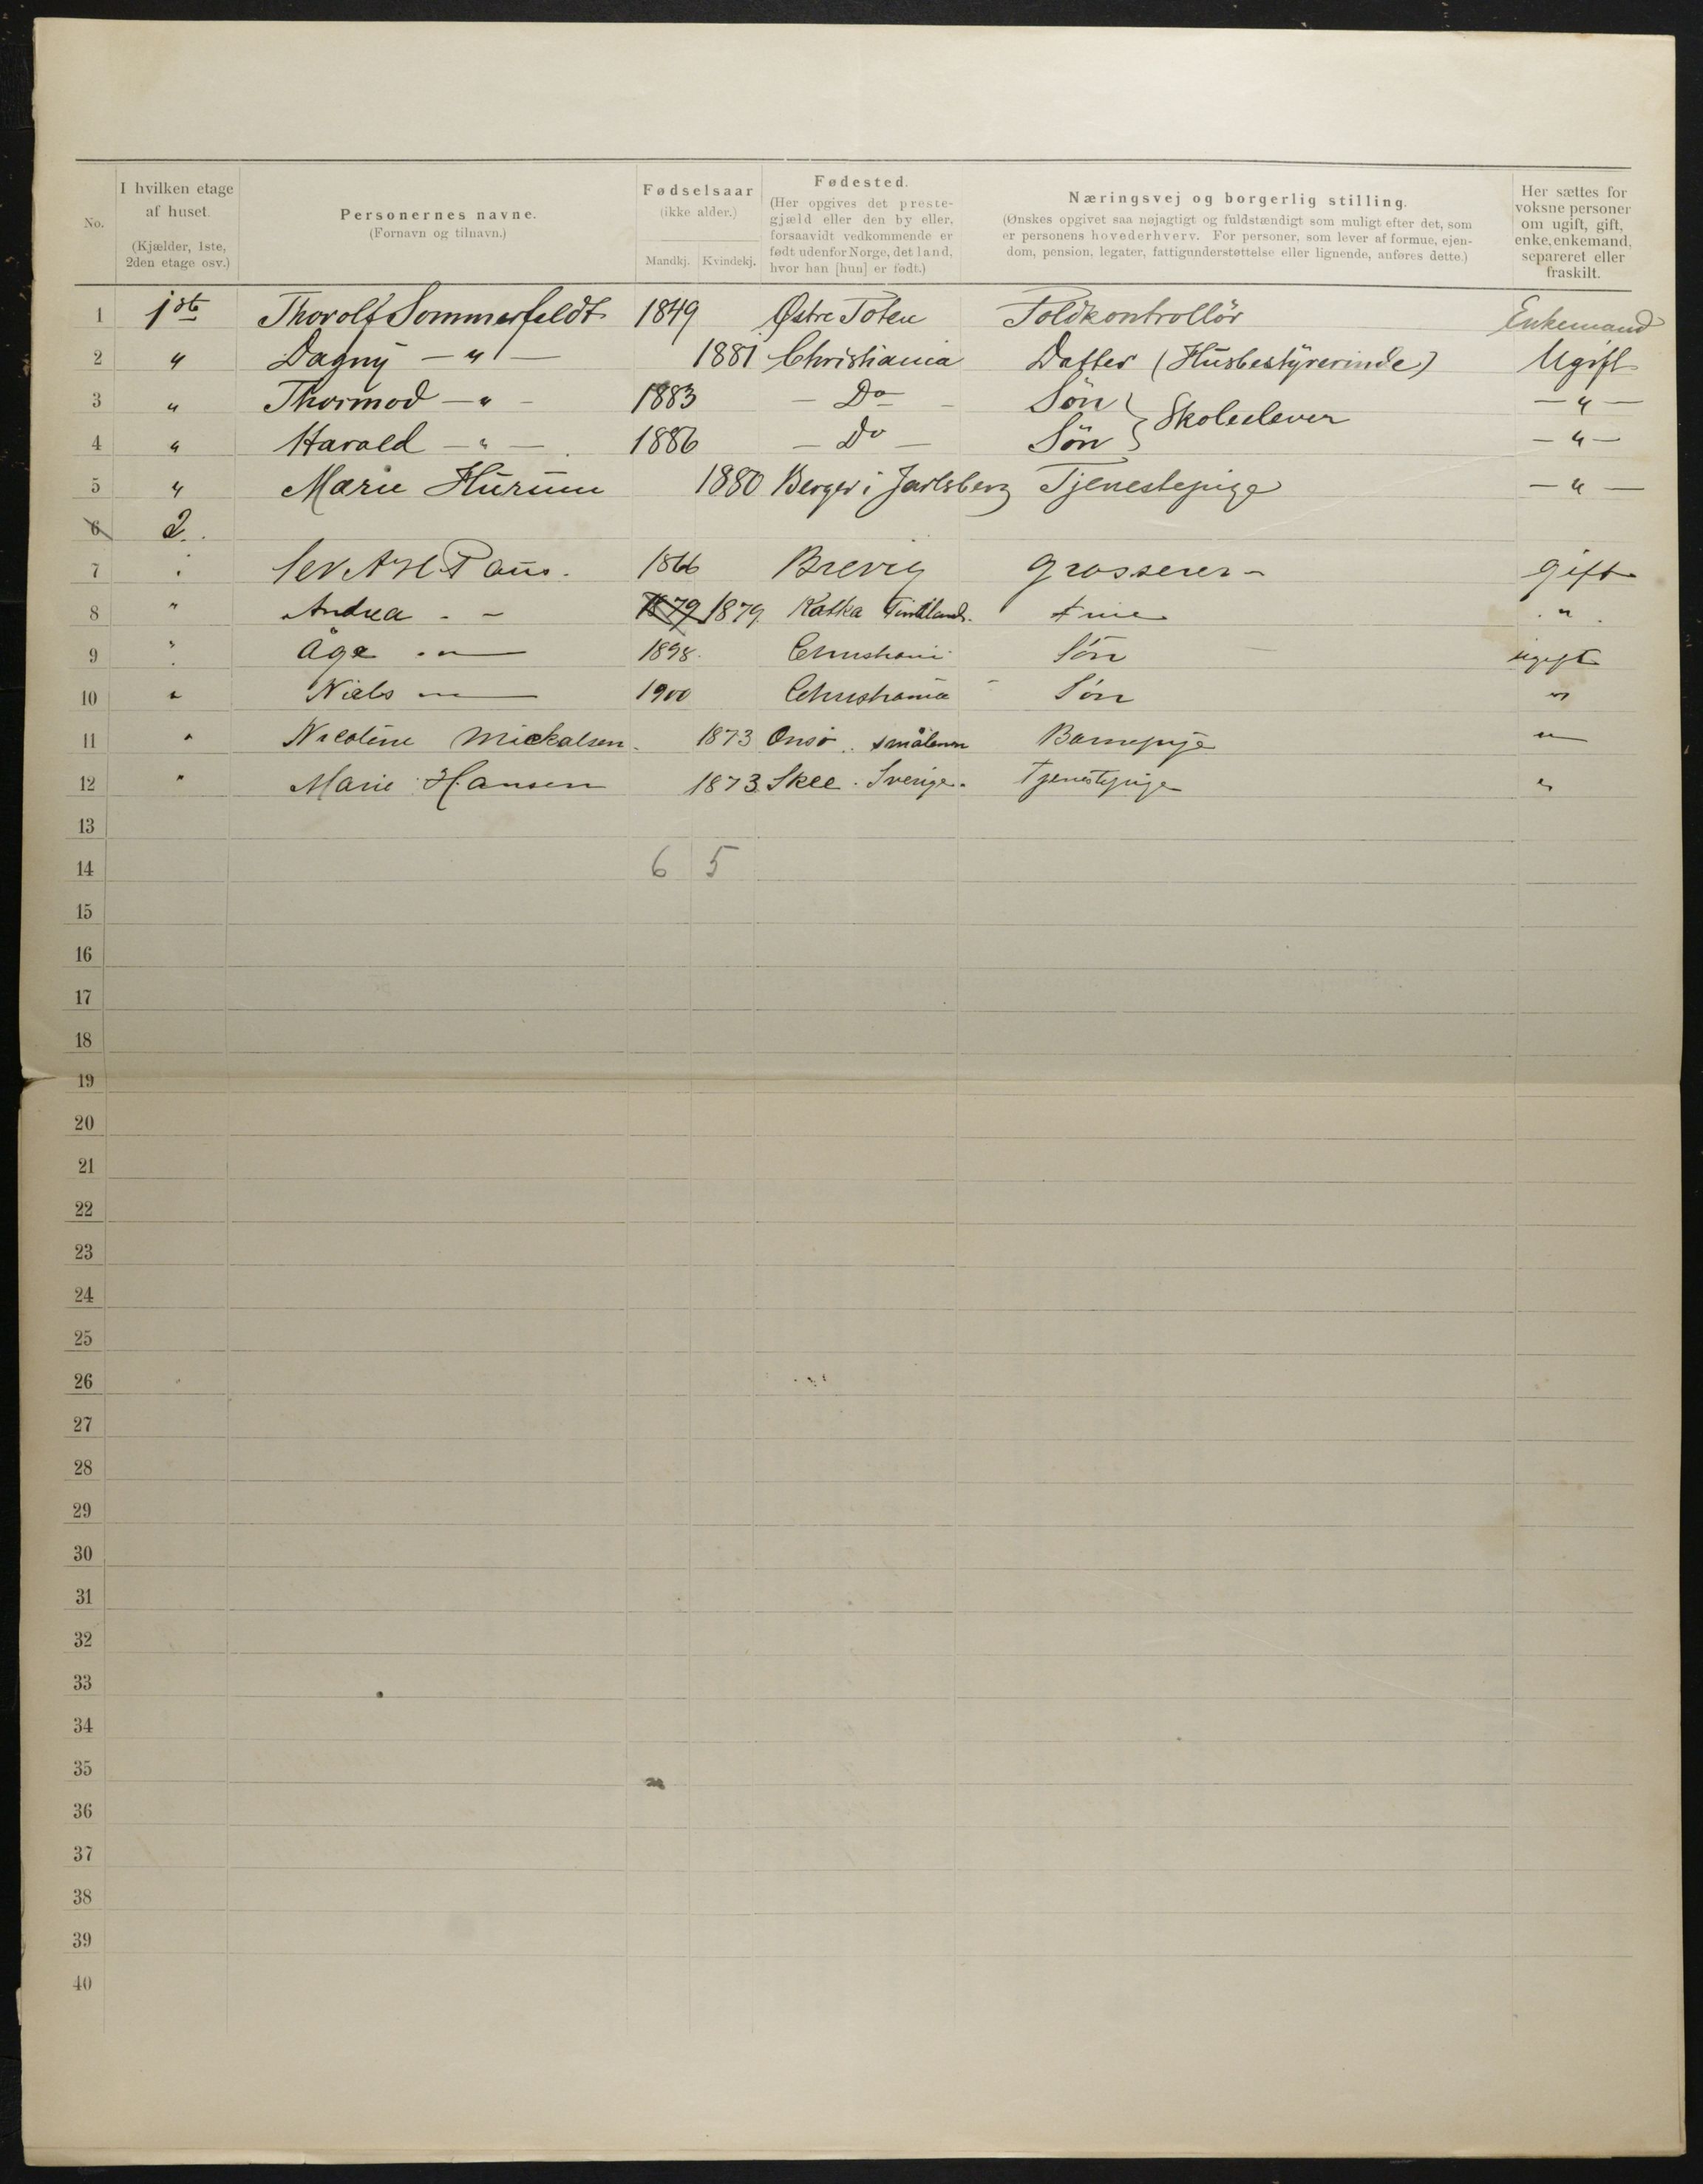 No. | I hvilken etage af huset. (Kjælder, 1ste, 2den etage osv.) | Personernes navne. (Fornavn og tilnavn.) | Fødselsaar (ikke alder.) Mandkj. Kvindekj. | Fødested. (Her opgives det prestegjæld eller den by eller, forsaavidt vedkommende er født udenfor Norge, det land, hvor han [hun] er født.) | Næringsvej og borgerlig stilling. (Ønskes opgivet saa nøjagtigt og fuldstændigt som muligt efter det, som er personens hovederhverv. For personer, som lever af formue, ejendom, pension, legater, fattigunderstøttelse eller lignende, anføres dette.) | Her sættes for voksne personer om ugift, gift, enke, enkemand, separeret eller fraskilt.
1 1ste Thorolf Sommerfeldt 1849 Østre Toten Toldkontrollör Enkemand
2 " Dagny — " — 1881 Christiania Datter (Husbestyrerinde) Ugift
3 " Thormod — " — 1883 — Do — Sön } Skoleelever — " —
4 " Harald — " — 1886 — Do — Sön } — " —
5 " Marie Hurum 1880 Berger i Jarlsberg Tjenestepige — " —
6 2.
7 " Paus. 1866 Brevig Grosserer - gift
8 " Andrea - - 1879 1879 Kotka "
9 " Åge " — 1898. Christiani Són ugift
10 " Niels " — 1900 Christiania Són "
11 " Nicoline Mickalsen. 1873 Onsö. smålenen Barnepige "
12 " Marie Hansen 1873 Skee. Sverige. Tjenestepige "
13
14 6 5
15
16
17
18
19
20
21
22
23
24
25
26
27
28
29
30
31
32
33
34
35
36
37
38
39
40